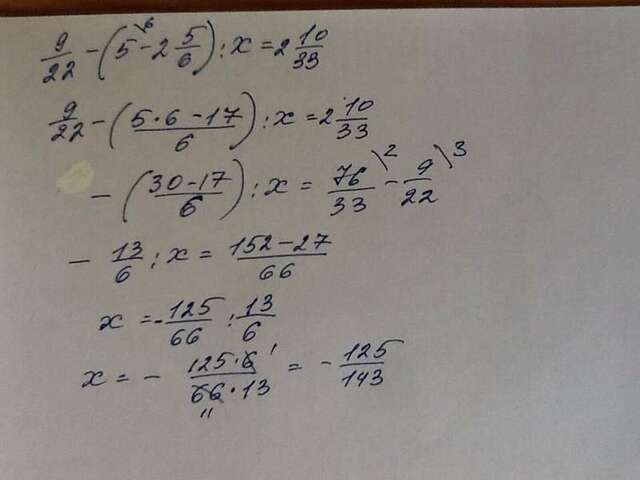 9/22 - (5\6 - 2 5/6) : x = 2 10/33
9/22 - (5·6-17/6) : x = 2 10/33
- (30-17/6) : x = 76/33\2 - 9/22\3
- 13/6 : x = 152-27/66
x = -125/66 : 13/6
x = - 125·6 1/66·13 11 = - 125/143